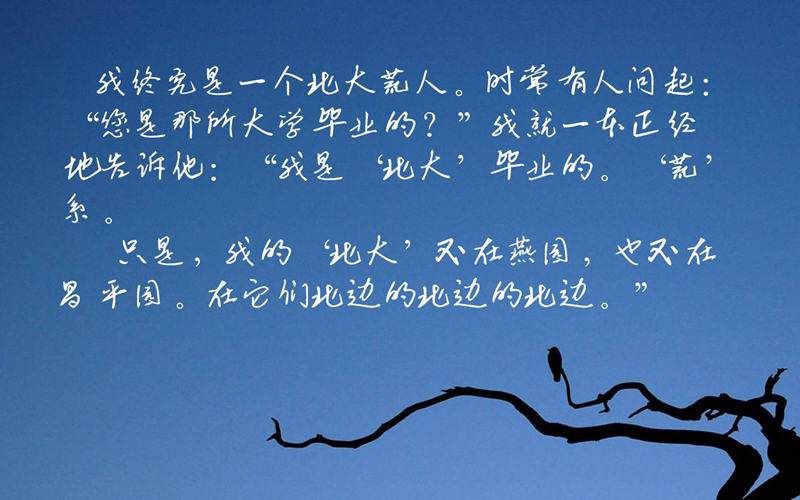 我终究是一个北大荒人。时常有人问起：
“您是那所大学毕业的？”我就一本正经
地告诉他：“我是‘北大’毕业的。‘荒’
系。
只是，我的‘北大’不在燕园，也不在
昌平园。在它们北边的北边的北边。”